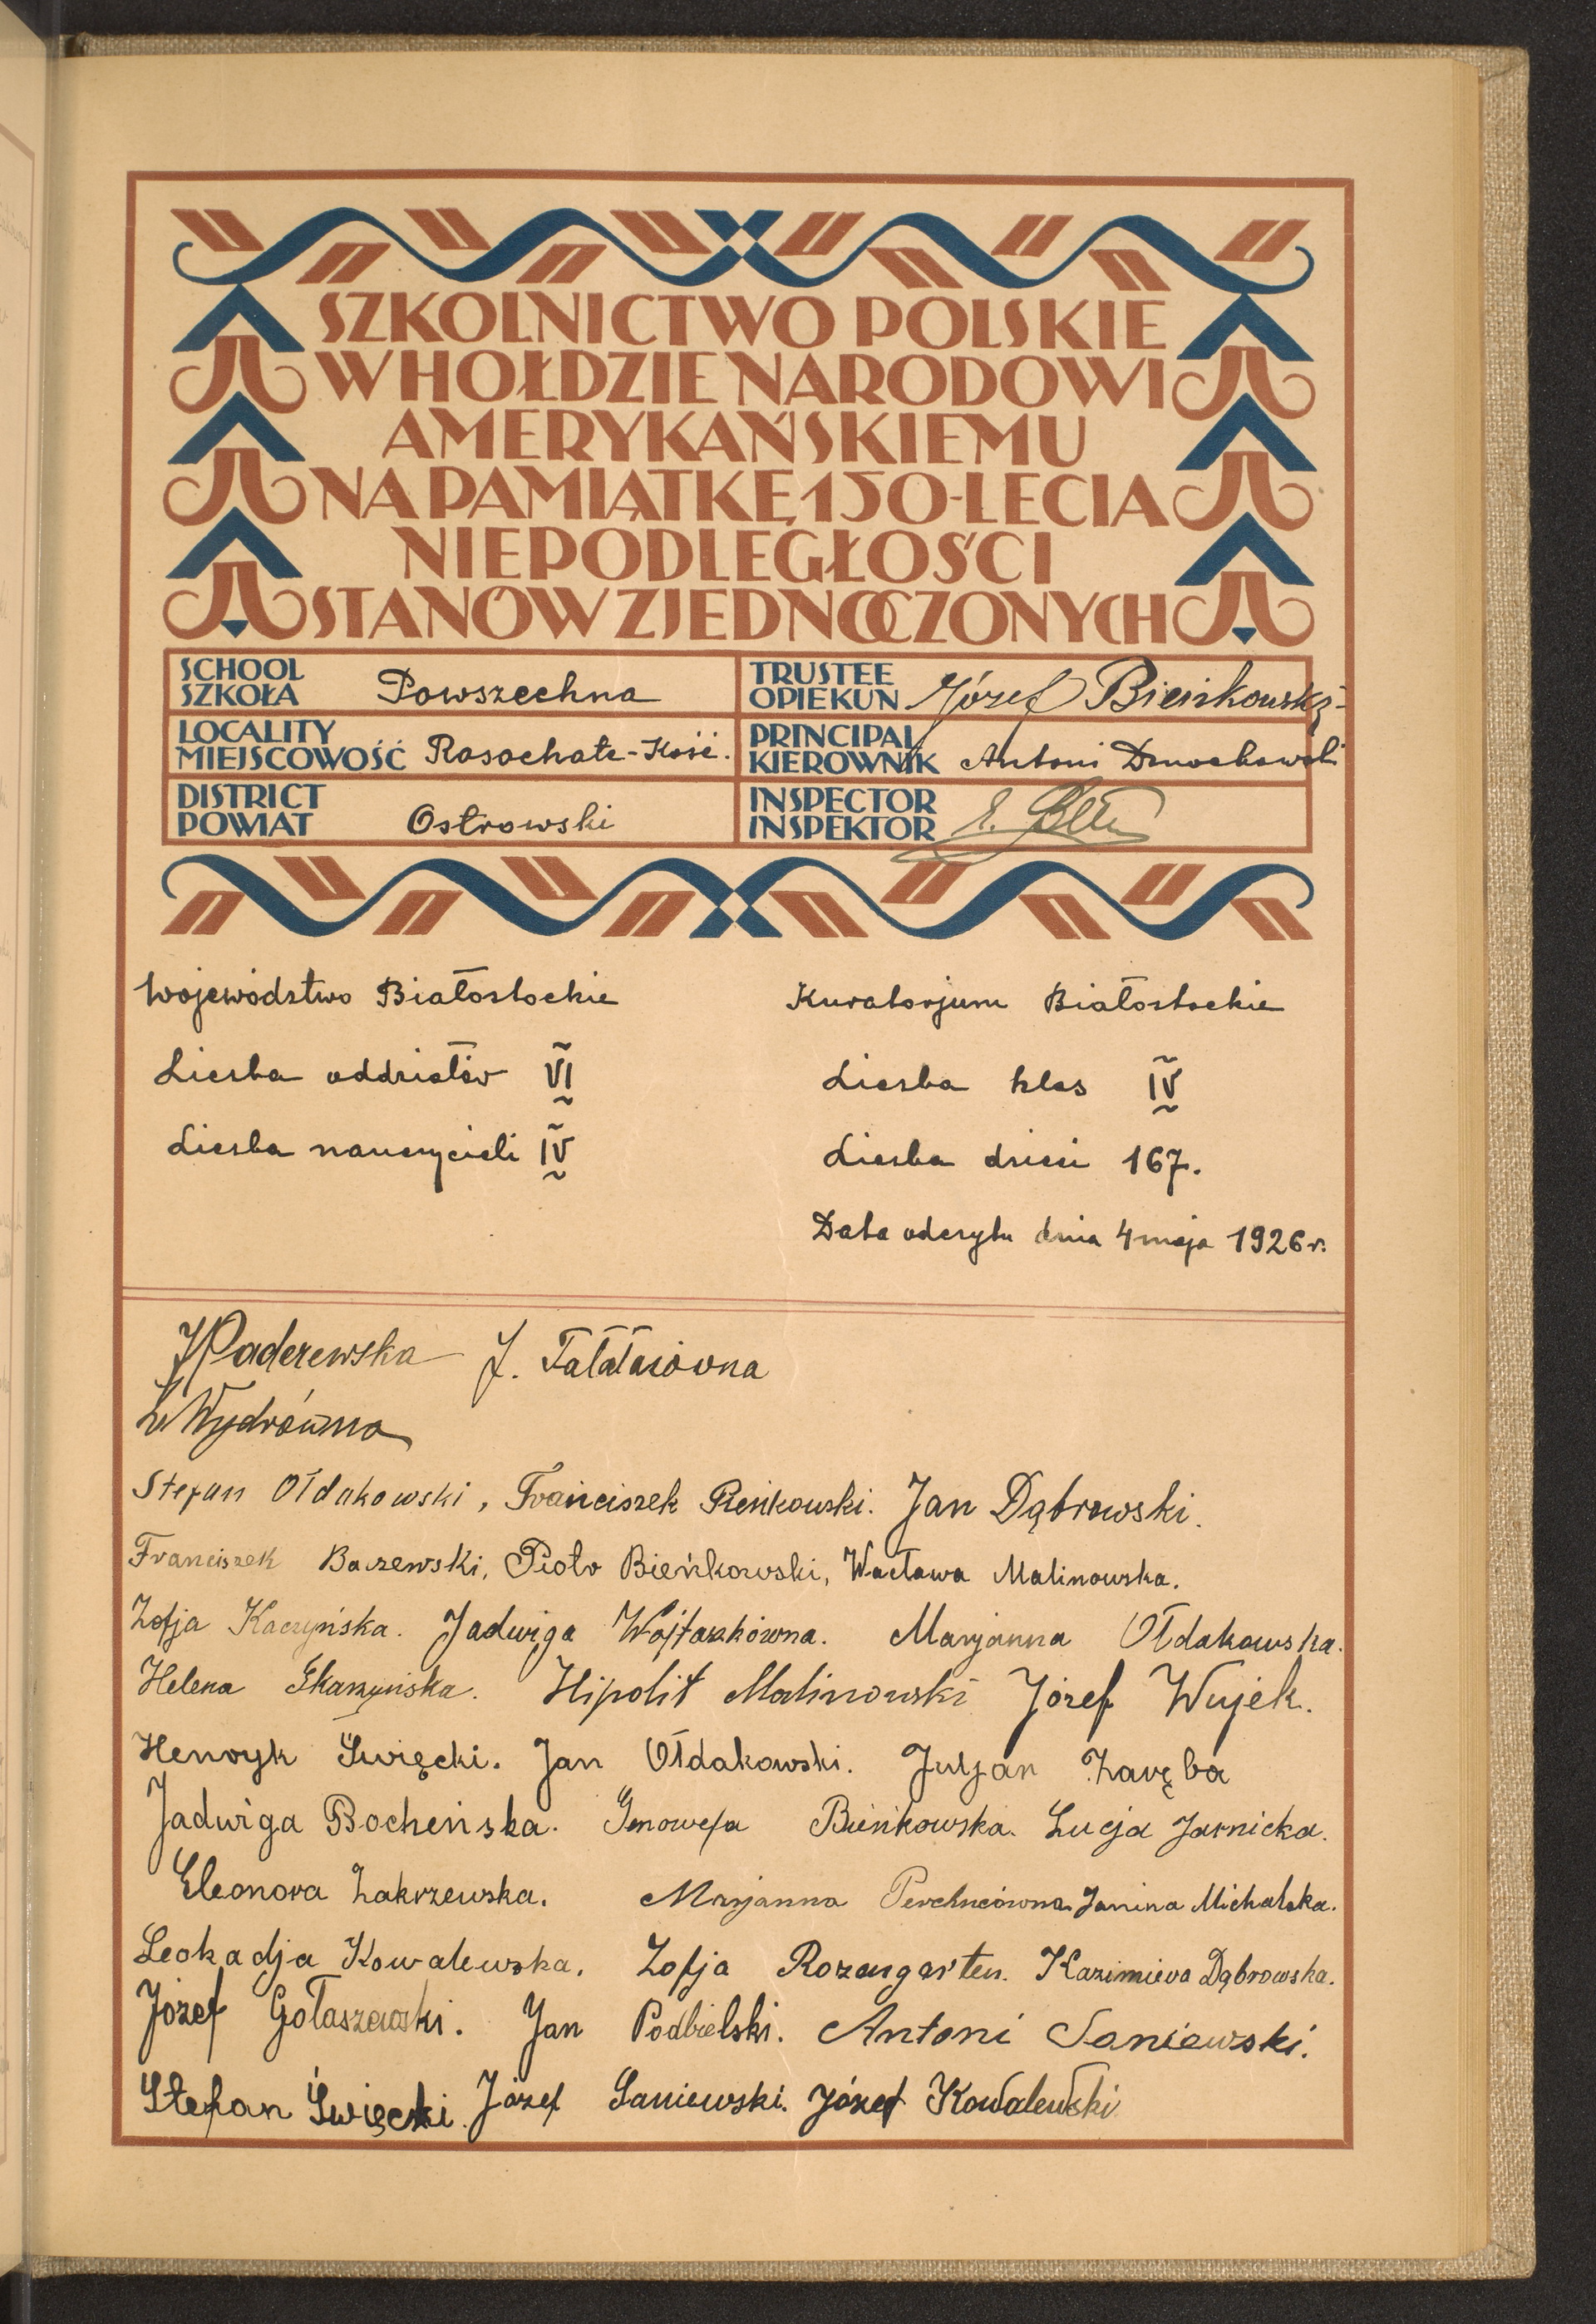 SZKOLNICTWO POLSKIE
W HOŁDZIE NARODOWI
AMERYKAŃSKIEMU
NA PAMIĄTKĘ 150-LECIA
NIEPODLEGŁOŚCI
STANÓW ZJEDNOCZONYCH
SCHOOL
SZKOŁA Powszechna
TRUSTEE
OPIEKUN Józef Bieńkowski
LOCALITY
MIEJSCOWOŚĆ Rosochate-Kość.
PRINCIPAL
KIEROWNIK Antoni Dmochowski
DISTRICT
POWIAT Ostrowski
INSPECTOR
INSPEKTOR
Województwo Białostockie
Kuratorjum Białostockie
Liczba oddziałów VI
Liczba klas IV
Liczba nauczycieli IV
Liczba dzieci 167.
Data odczytu dnia 4 maja 1926 r.
J Paderewska J. Tałałasówna
Wydrówna
Stefan Ołdakowski, Franciszek Pieńkowski. Jan Dąbrowski.
Franciszek Baczewski, Piotr Bieńkowski, Wacława Malinowska.
Zofja Kaczyńska. Jadwiga Wojtaszkówna. Marjanna Ołdakowska.
Helena Skarzyńska. Hipolit Malinowski Józef Wujek.
Henryk Święcki. Jan Ołdakowski. Juljan Zaręba
Jadwiga Bocheńska. Genowefa Bieńkowska. Łucja Jarnicka.
Eleonora Zakrzewska. Marjanna Janina Michalska.
Leokadja Kowalewska. Zofja Rozengarten. Kazimiera Dąbrowska.
Józef Gołaszewski. Jan Podbielski. Antoni Saniewski.
Stefan Święcki. Józef Saniewski. Józef Kowalewski